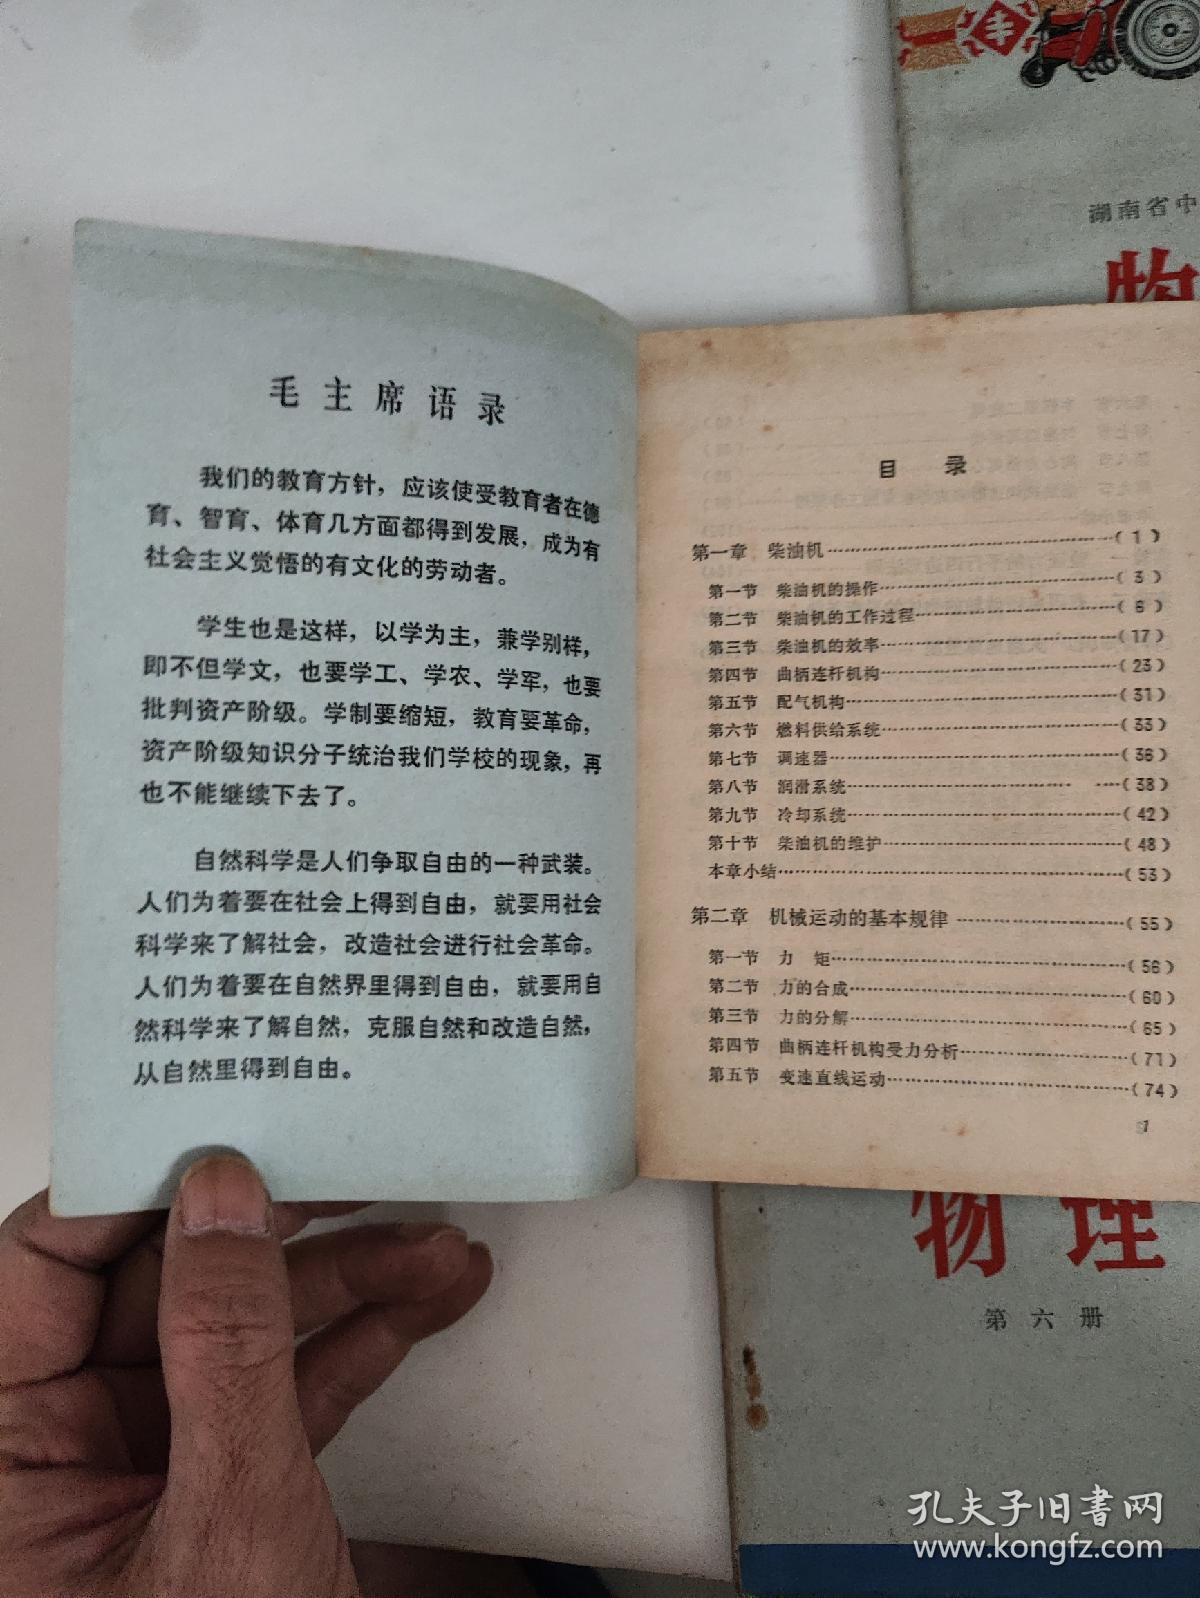 毛主席语录
我们的教育方针，应该使受教育者在德
育、智育、体育几方面都得到发展，成为有
社会主义觉悟的有文化的劳动者。
学生也是这样，以学为主，兼学别样，
即不但学文，也要学工、学农、学军，也要
批判资产阶级。学制要缩短，教育要革命，
资产阶级知识分子统治我们学校的现象，再
也不能继续下去了。
自然科学是人们争取自由的一种武装。
人们为着要在社会上得到自由，就要用社会
科学来了解社会，改造社会进行社会革命。
人们为着要在自然界里得到自由，就要用自
然科学来了解自然，克服自然和改造自然，
从自然里得到自由。
目 录
第一章 柴油机……(1)
第一节 柴油机的操作……(3)
第二节 柴油机的工作过程……(6)
第三节 柴油机的效率……(17)
第四节 曲柄连杆机构……(23)
第五节 配气机构……(31)
第六节 燃料供给系统……(33)
第七节 调速器……(36)
第八节 润滑系统……(38)
第九节 冷却系统……(42)
第十节 柴油机的维护……(48)
本章小结……(53)
第二章 机械运动的基本规律……(55)
第一节 力 矩……(56)
第二节 力的合成……(60)
第三节 力的分解……(65)
第四节 曲柄连杆机构受力分析……(71)
第五节 变速直线运动……(74)
1
湖南省中
物
物理
第六册
孔夫子旧书网
www.kongfz.com